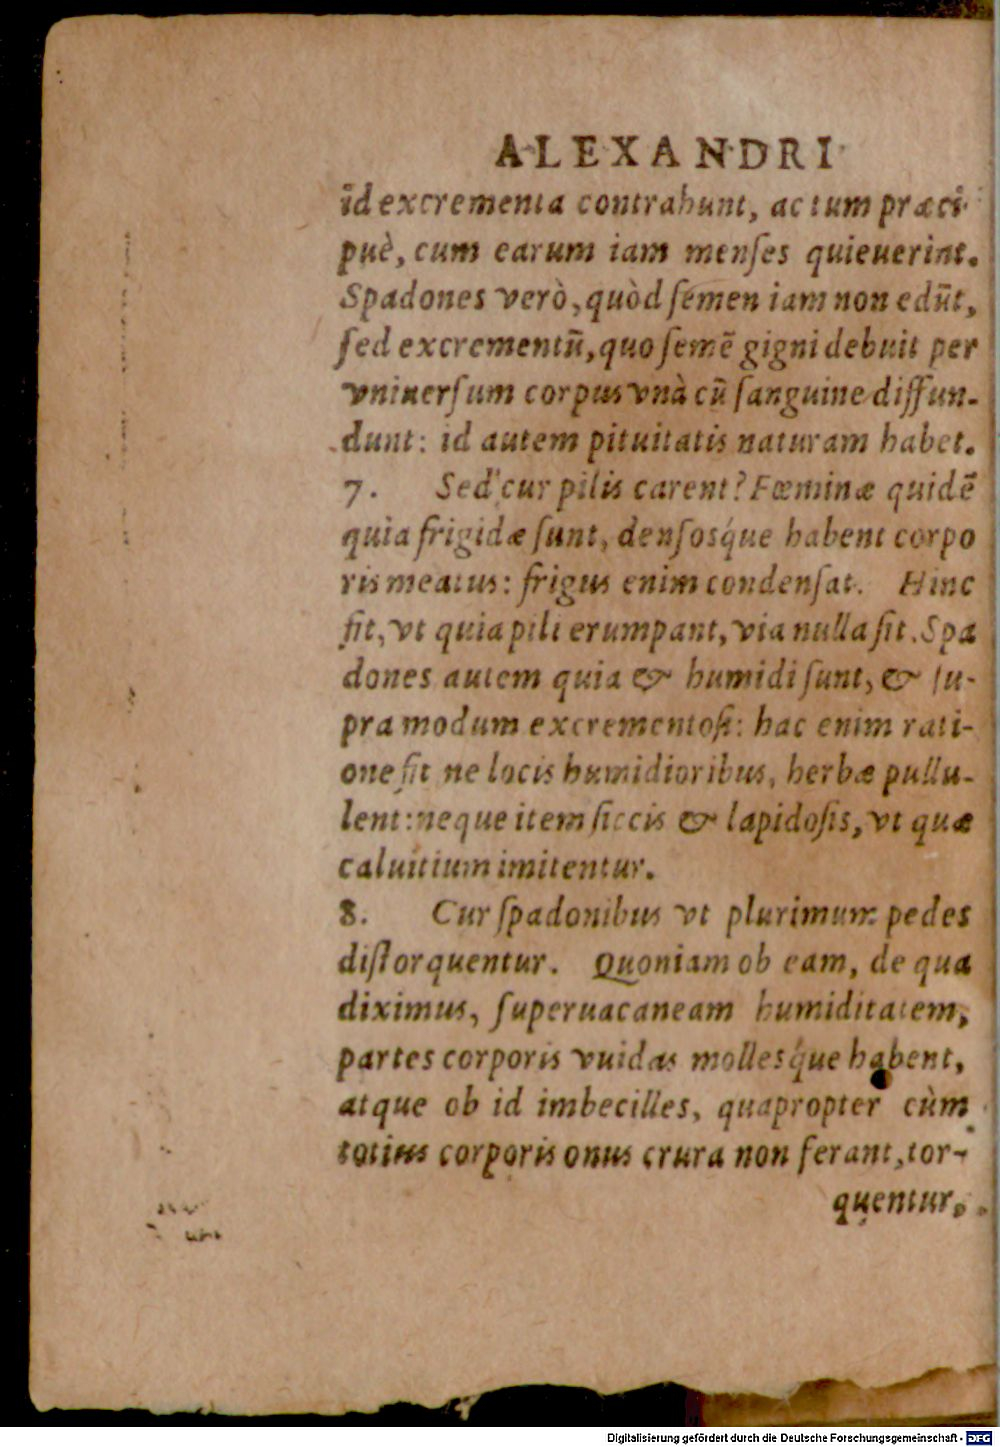 ALEXANDRI
id excrementa contrahunt, ac tum præci
puè, cum earum iam menſes quieuerint.
Spadones verò, quòd ſemen iam non edũt,
ſed excrementũ, quo ſemẽ gigni debuit per
vniuerſum corpus vnà cũ ſanguine diffun-
dunt: id autem pituitatis naturam habet.
7. Sed cur pilis carent? Fœminæ quidẽ
quia frigidæ ſunt, denſosq́ue habent corpo
ris meatus: frigus enim condenſat. Hinc
fit, vt quia pili erumpant, via nulla ſit. Spa
dones autem quia & humidi ſunt, & ſu-
pra modum excrementoſi: hac enim rati-
one fit ne locis humidioribus, herbæ pullu-
lent: neque item ſiccis & lapidoſis, vt quæ
caluitium imitentur.
8. Cur ſpadonibus vt plurimum pedes
diſtorquentur. Quoniam ob eam, de qua
diximus, ſuperuacaneam humiditatem,
partes corporis vuidas mollesq́ue habent,
atque ob id imbecilles, quapropter cùm
totius corporis onus crura non ferant, tor-
quentur.
Digitalisierung gefördert durch die Deutsche Forschungsgemeinschaft - DFG